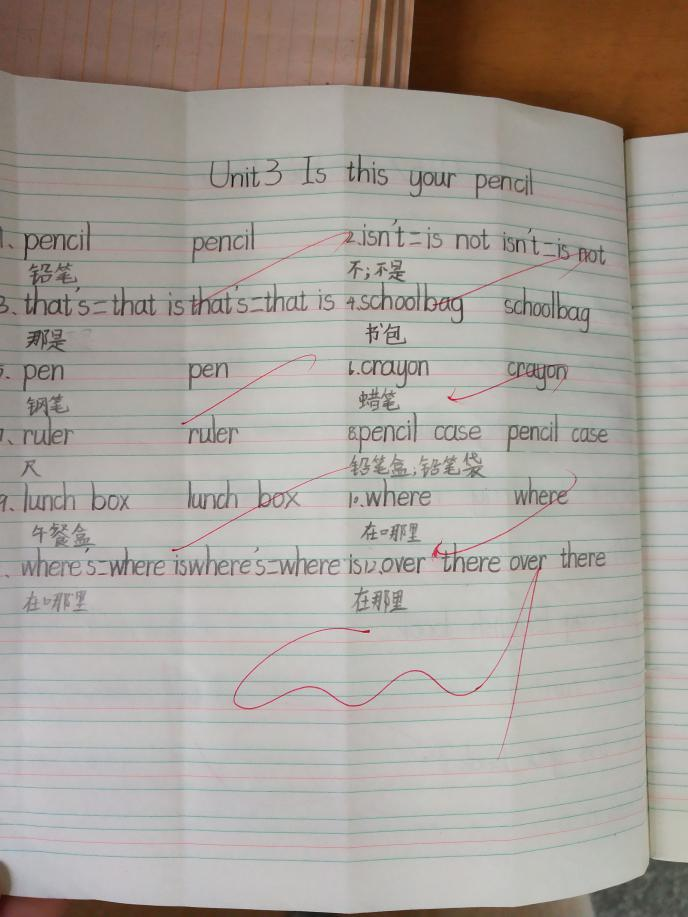 Unit 3 Is this your pencil
1、pencil pencil 2.isn't=is not isn't=is not
铅笔 不;不是
3、that's=that is that's=that is 4.schoolbag schoolbag
那是 书包
5、pen pen 6.crayon crayon
钢笔 蜡笔
7、ruler ruler 8.pencil case pencil case
尺 铅笔盒;铅笔袋
9、lunch box lunch box 10.where where
午餐盒 在哪里
、where's=where is where's=where is 12.over there over there
在哪里 在那里